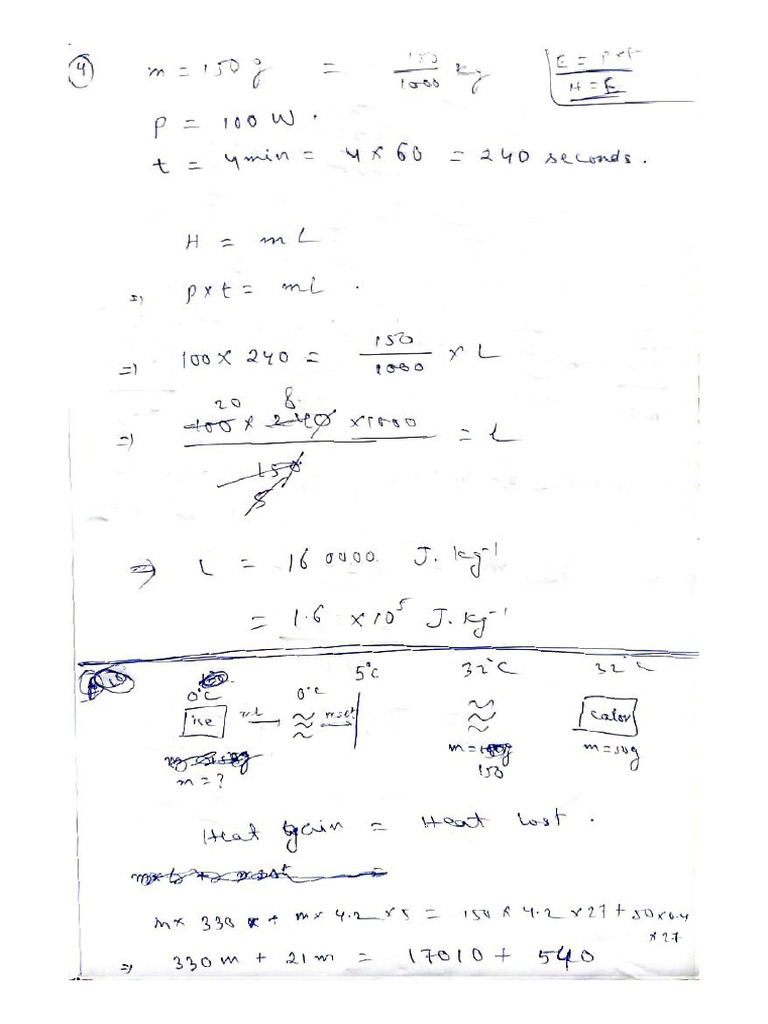 4
m = 150 g = 150/1000 kg
E = P×t
H = E
P = 100 W.
t = 4 min = 4 × 60 = 240 seconds.
H = mL
=> P×t = mL.
=> 100 × 240 = 150/1000 × L
20 8
=> 100 × 240 × 1000 / 150 = L
5
=> L = 160000 J.kg⁻¹
= 1.6 × 10⁵ J.kg⁻¹
10
0°C 0°C 5°C 32°C 32°C
ice mL calor
m = ? m = 150 m = 50g
Heat gain = Heat lost.
m × 330 + m × 4.2 × 5 = 150 × 4.2 × 27 + 50 × 0.4
× 27
=> 330m + 21m = 17010 + 540